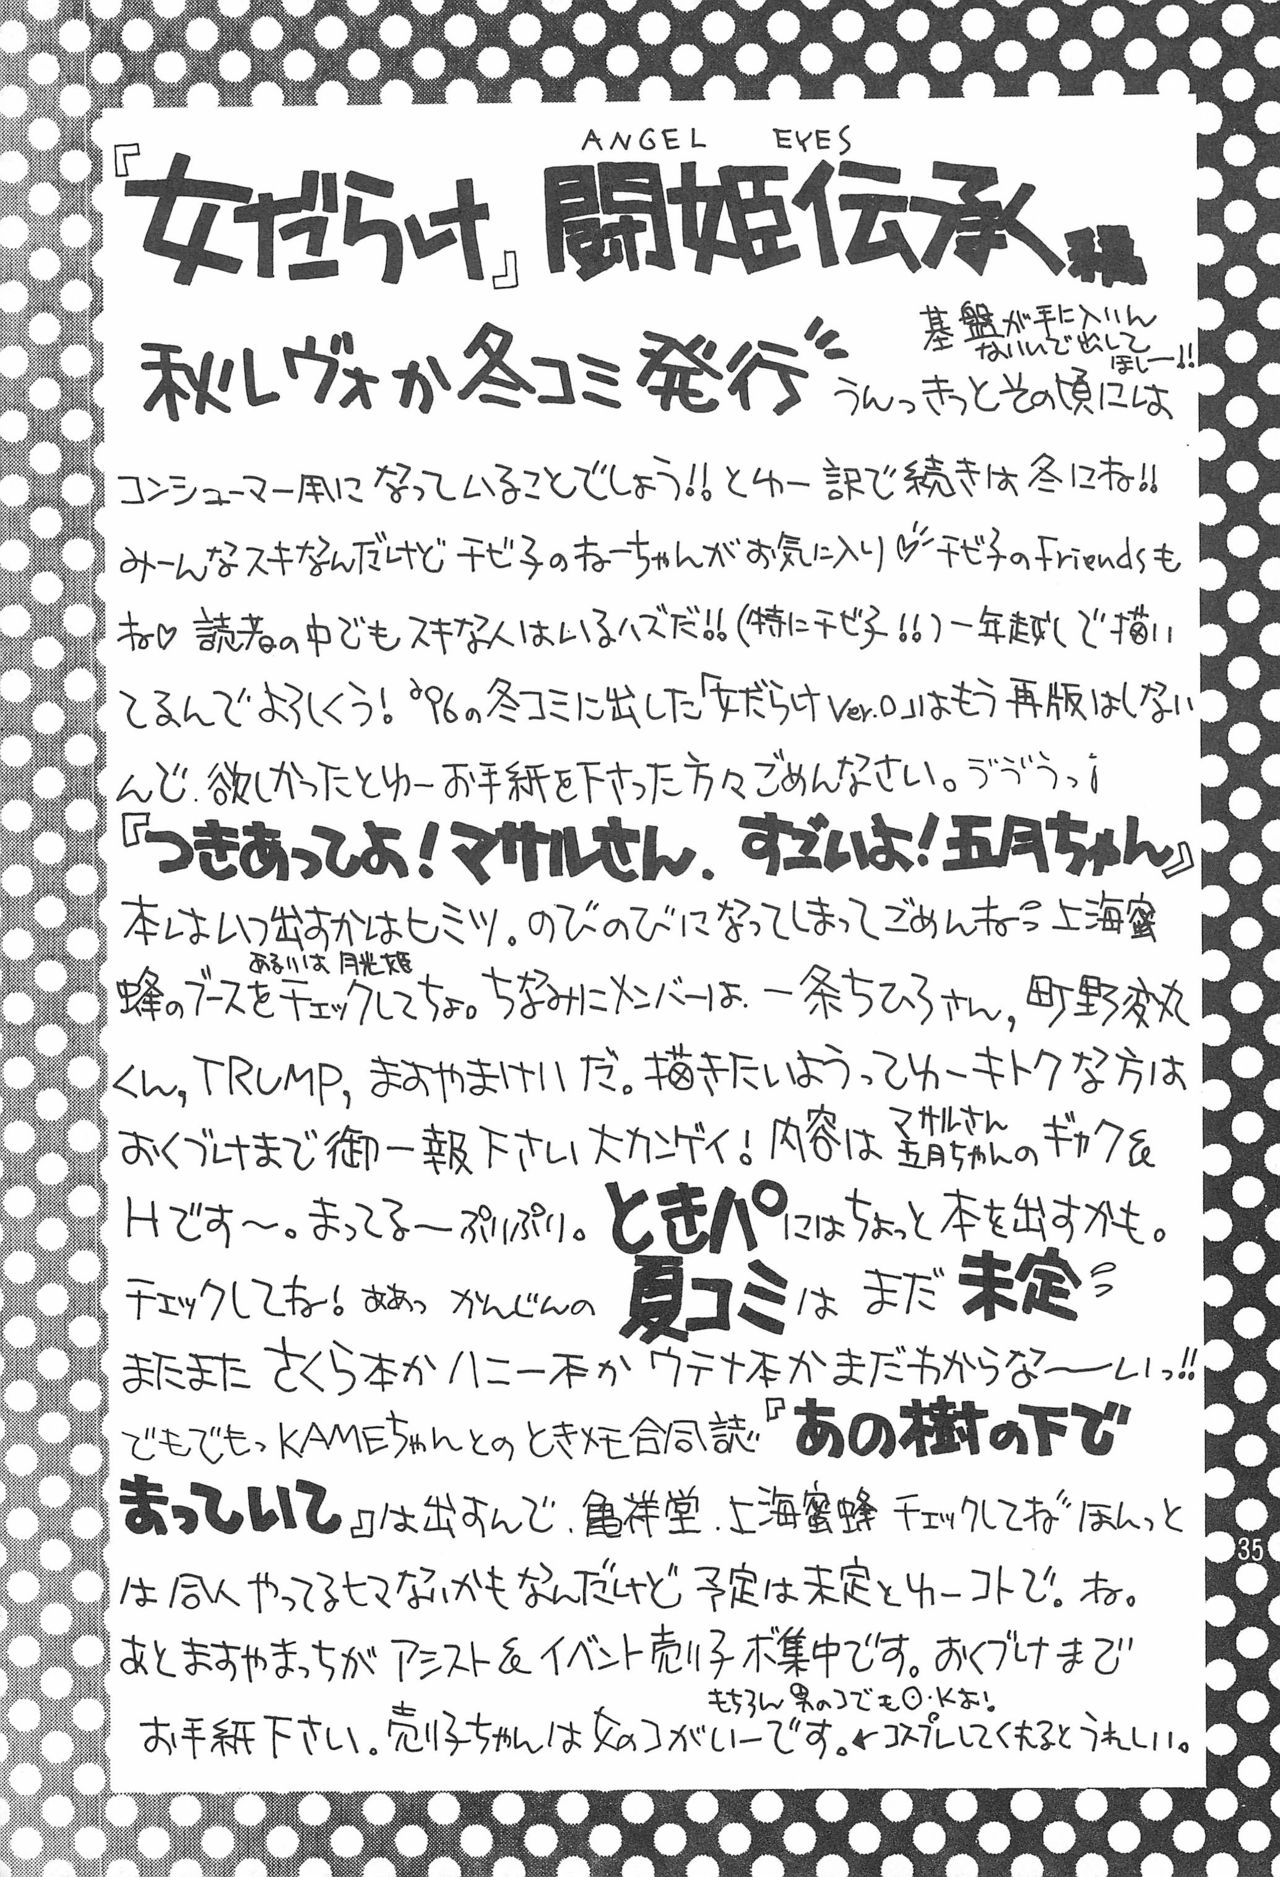 ANGEL EYES
『女だらけ』闘姫伝承編
秋レヴォか冬コミ発行
基盤が手に入いん
ないんで出して
ほしー!!
うんっきっとその頃には
コンシューマー用になっていることでしょう!!とゆー訳で続きは冬にね!!
みーんなスキなんだけどチビ子のねーちゃんがお気に入り♡チビ子のFriendsも
ね♡読者の中でもスキな人はいるハズだ!!(特にチビ子!!)一年越しで描い
てるんでよろしくう!'96の冬コミに出した「女だらけVer.0」はもう再版はしない
んで、欲しかったとゆーお手紙を下さった方々ごめんなさい。ゔゔうっ¡
『つきあってよ!マサルさん、すごいよ!五月ちゃん』
本はいつ出すかはヒミツ。のびのびになってしまってごめんねっ上海蜜
あるいは月光姫
蜂のブースをチェックしてちょ。ちなみにメンバーは、一条ちひろさん,町野変丸
くん,TRUMP,ますやまけいだ。描きたいようってゆーキトクな方は
おくづけまで御一報下さい大カンゲイ!内容はマサルさん
五月ちゃんのギャグ&
Hです〜。まってる〜ぷりぷり。ときパにはちょっと本を出すかも。
チェックしてね!ああっかんじんの夏コミはまだ未定
またまたさくら本かハニー本かウテナ本かまだわからな〜いっ!!
でもでもっKAMEちゃんとのときメモ合同誌『あの樹の下で
まっていて』は出すんで、亀祥堂、上海蜜蜂チェックしてねほんっと
は同人やってるヒマないかもなんだけど予定は未定とゆーコトで。ね。
あとますやまっちがアシスト&イベント売り子ボ集中です。おくづけまで
もちろん男のコでもO.Kよ!
お手紙下さい。売り子ちゃんは女のコがいーです。←コスプレしてくれるとうれしい。
35